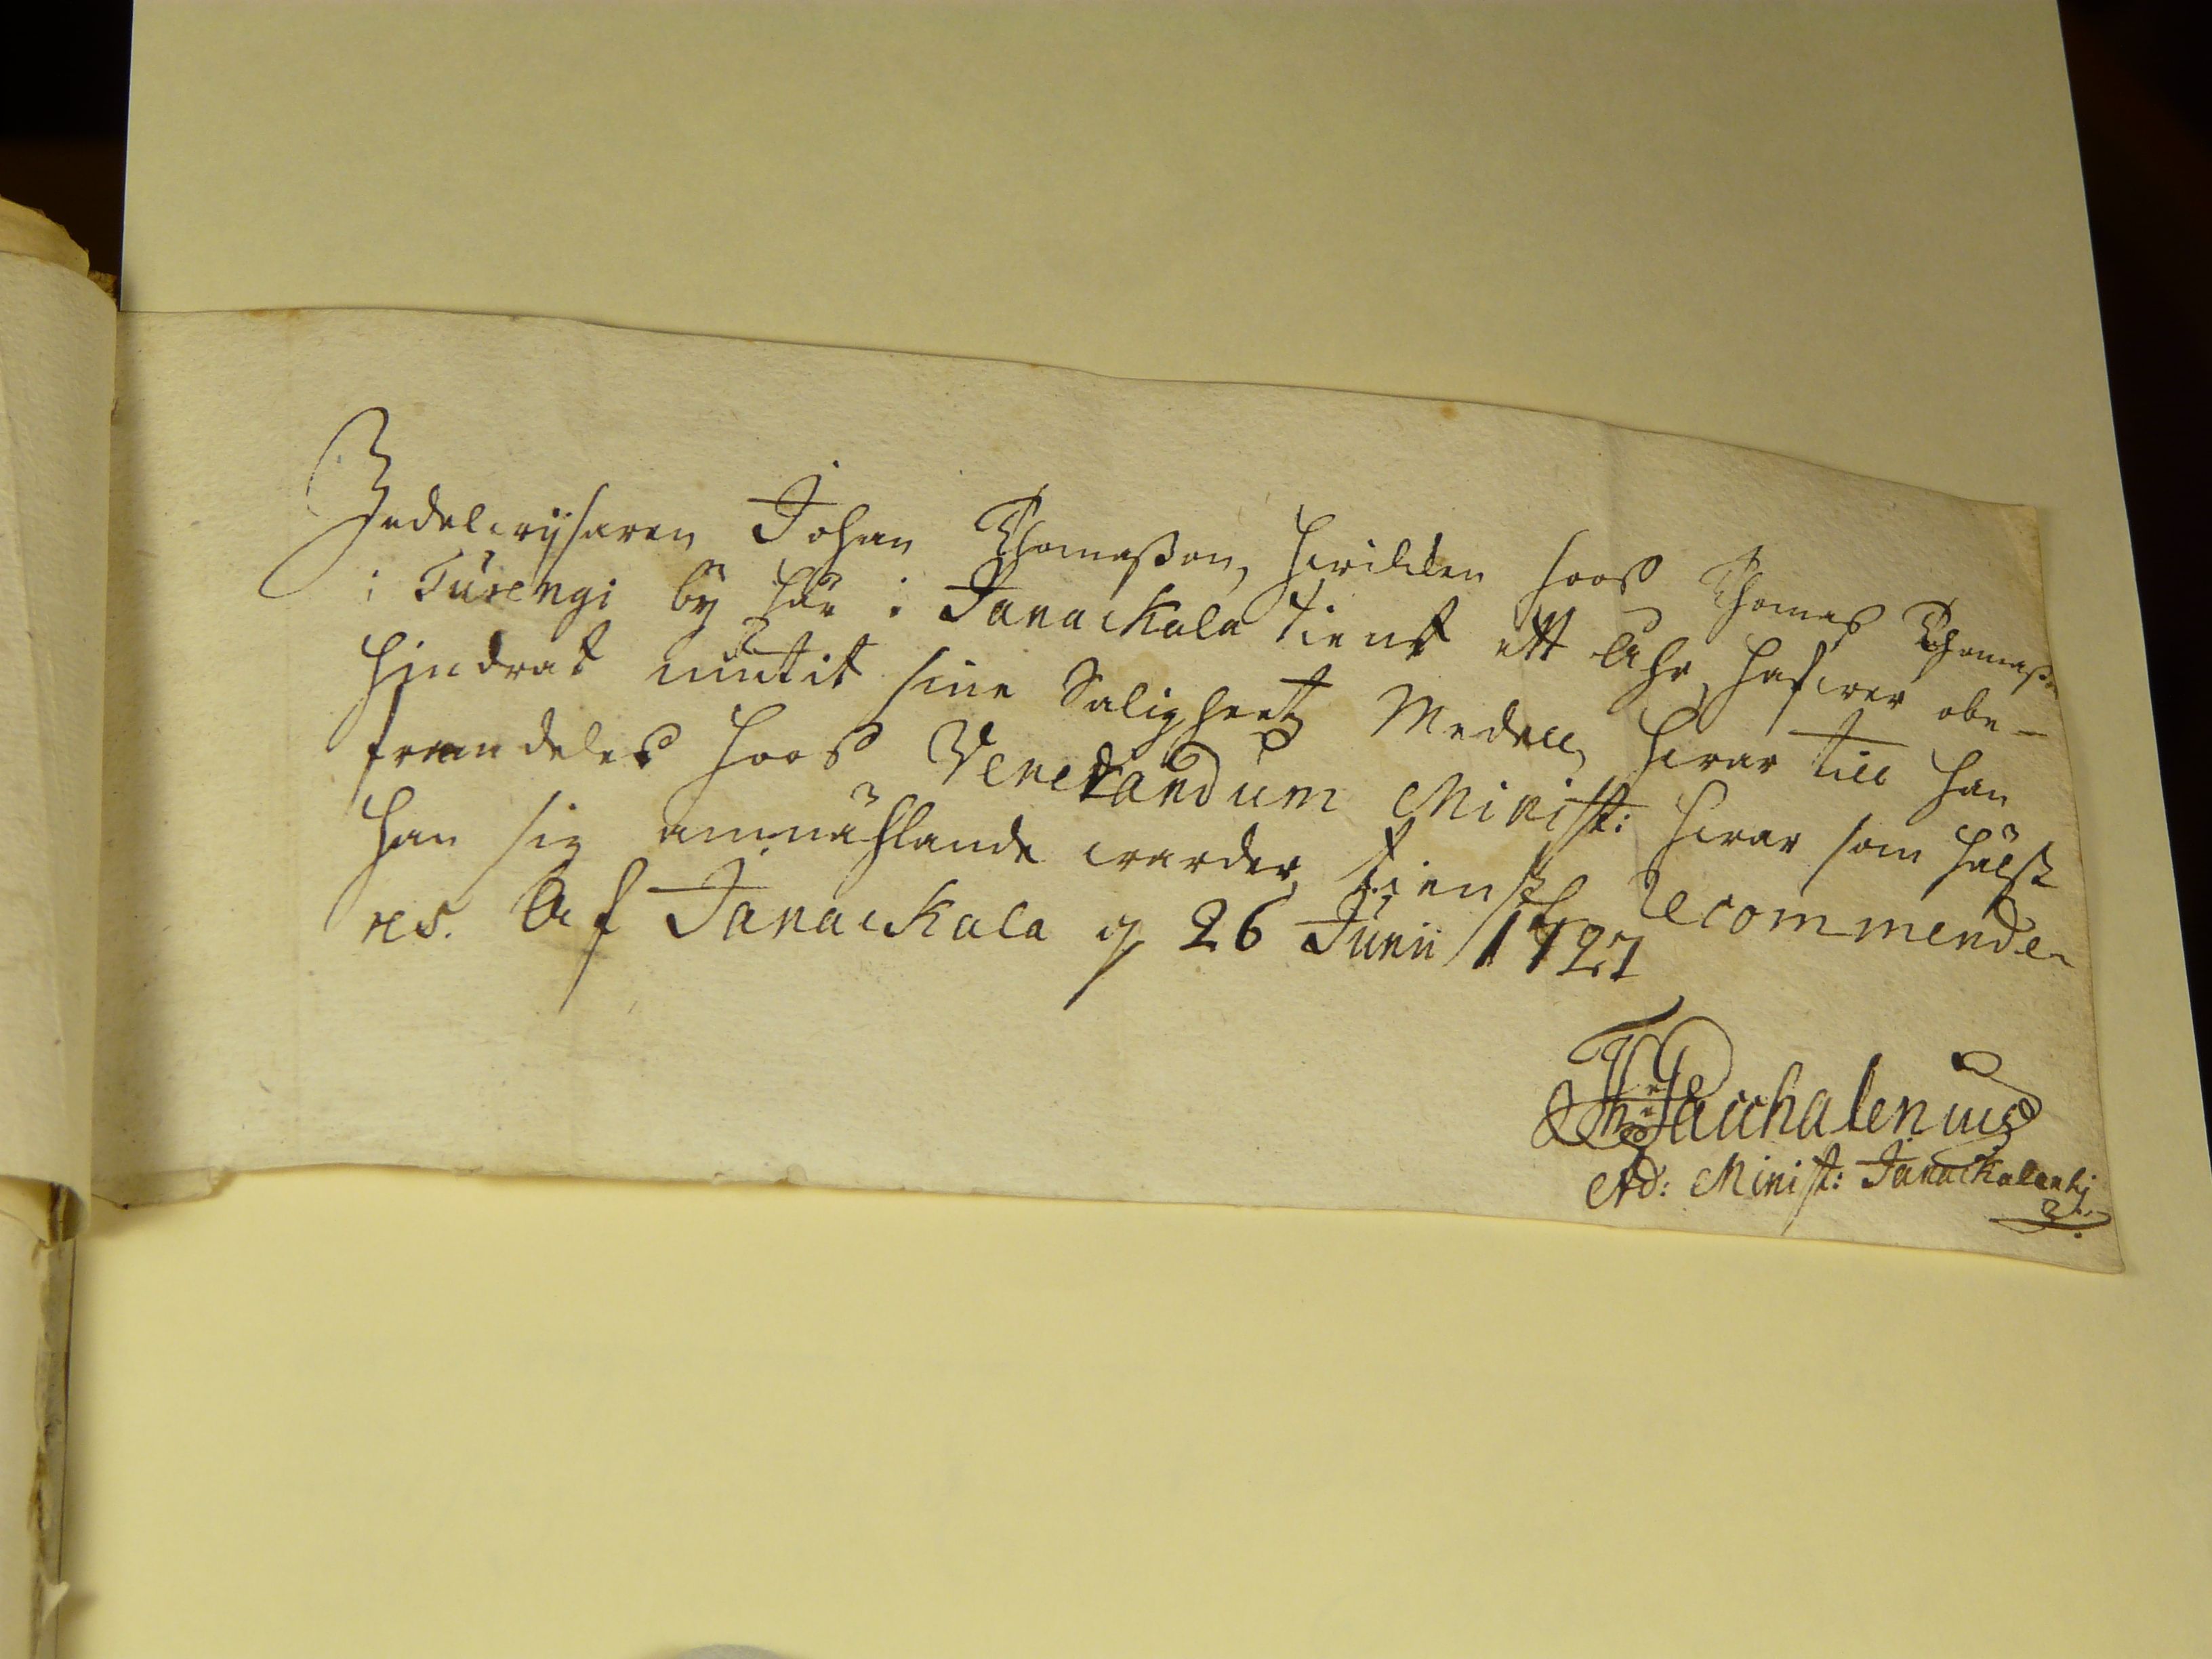 Zedelwijsaren Johan Thomasson, hwilcken hoos Thomas Thomass:
i Turengi by här i Janackala tient ett åhr, hafwer obe-
hindrat niutit sine Saligheetz Medell, hwar till han
framdeles hoos Venerandum Minist: hwar som hälst
han sig anmählande warder, tienstl. recommende-
res. Af Janackala d. 26 Junii 1727
Th: Paschalenius
Ad: Minist: Janackalensis